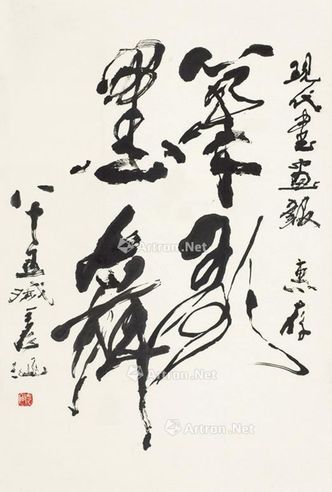 現代書畫報 惠存
筆歌
墨舞
八十五歲
Artron.Net
Artron.Net